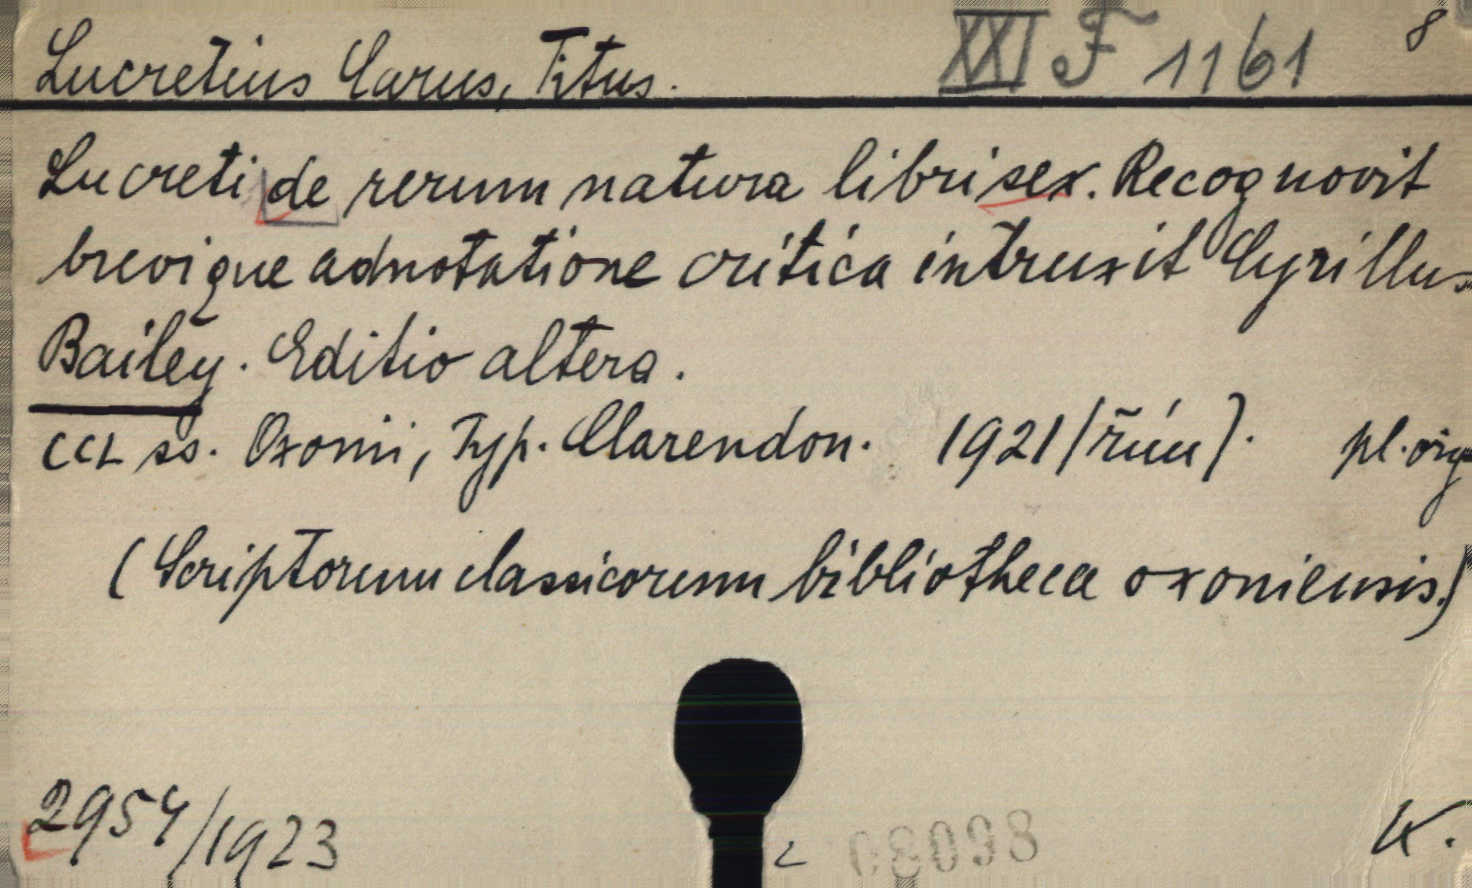 Lucretius Carus, Titus. XXI F 1161 8
Lucreti de rerum natura libri sex. Recognovit
brevique adnotatione critica intruxit Cyrillus
Bailey. Editio altera.
CCL ss. Oxonii, Typ. Clarendon. 1921 (říj). pl. orig
(Scriptorum classicorum bibliotheca oxoniensis.)
2954/1923 03098 K.